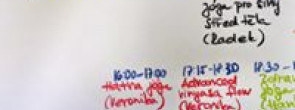 jóga pro silný
střed těla
(Radek)
16:00-17:00
Hatha jóga
(Veronika)
17:15-18:30
Advanced
vinyasa flow
(Veronika)
18:30-